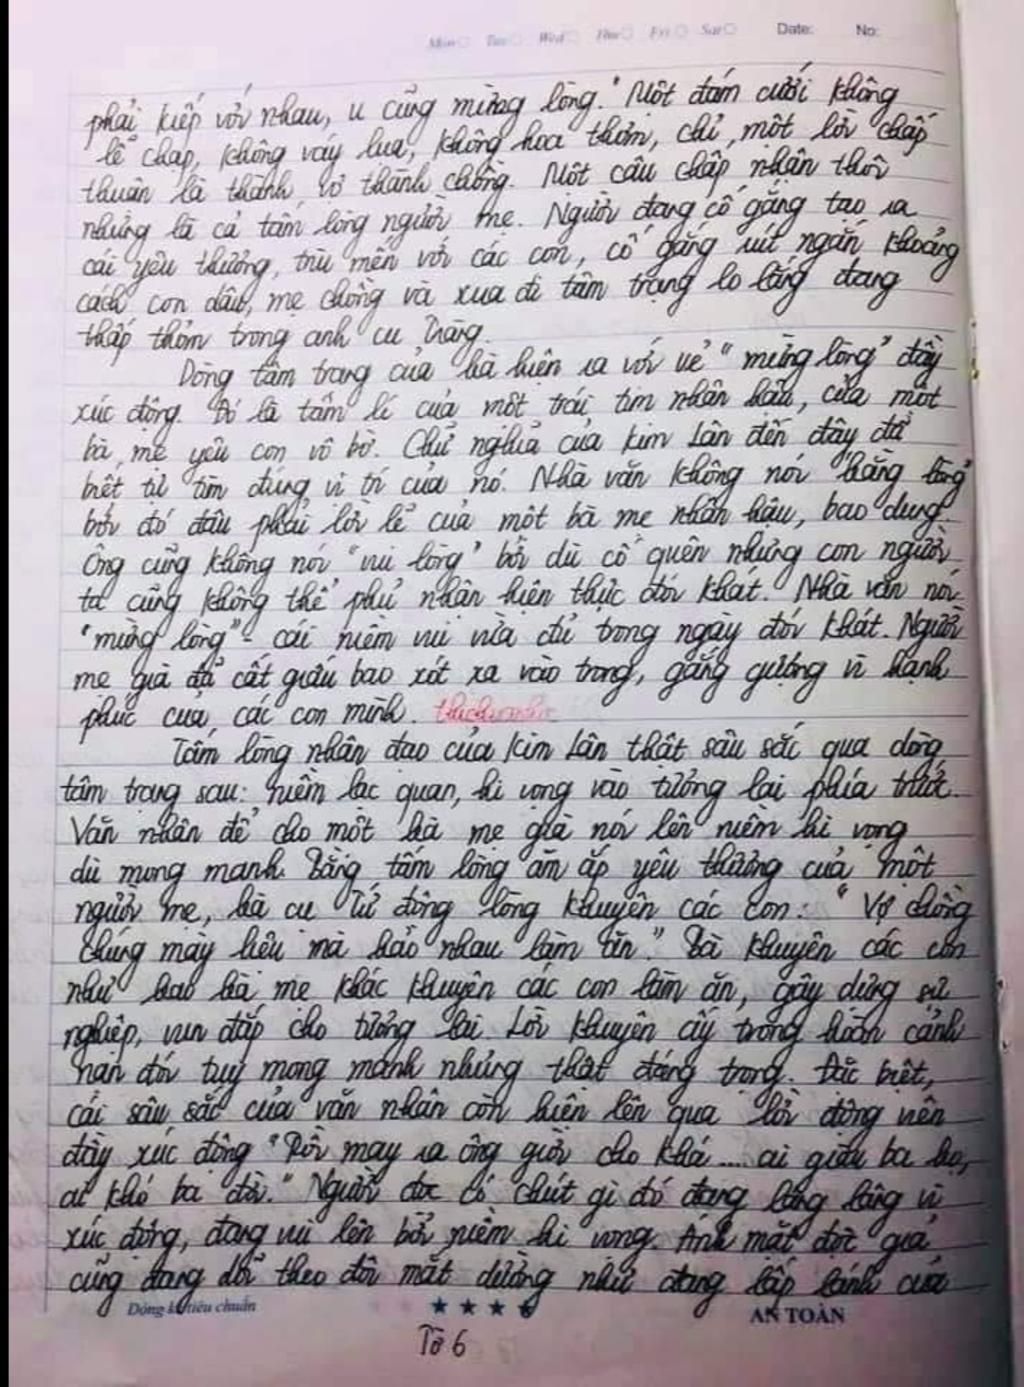 Mon Tue Wed Thu Fri Sat Date: No:
phải kiếp với nhau, u cũng mừng lòng." Một đám cưới không
lễ chạp, không váy lụa, không hoa thơm, chỉ một lời chấp
thuận là thành vợ thành chồng. Một câu chấp nhận thôi
nhưng là cả tấm lòng người mẹ. Người đang cố gắng tạo ra
cái yêu thương, trìu mến với các con, cố gắng rút ngắn khoảng
cách con dâu, mẹ chồng và xua đi tâm trạng lo lắng đang
thấp thỏm trong anh cu Tràng.
Dòng tâm trạng của bà hiện ra với vẻ "mừng lòng" đầy
xúc động. Đó là tâm lí của một trái tim nhân hậu, của một
bà mẹ yêu con vô bờ. Chữ nghĩa của Kim Lân đến đây đã
biết tự tìm đúng vị trí của nó. Nhà văn không nói "bằng lòng"
bởi đó đâu phải lời lẽ của một bà mẹ nhân hậu, bao dung.
Ông cũng không nói "vui lòng" bởi dù cố quên nhưng con người
ta cũng không thể phủ nhận hiện thực đói khát. Nhà văn nói
"mừng lòng" - cái niềm vui vừa đủ trong ngày đói khát. Người
mẹ già đã cất giấu bao xót xa vào trong, gắng gượng vì hạnh
phúc của các con mình.
Tấm lòng nhân đạo của Kim Lân thật sâu sắc qua dòng
tâm trạng sau: niềm lạc quan, hi vọng vào tương lai phía trước.
Văn nhân để cho một bà mẹ già nói lên niềm hi vọng
dù mong manh. Bằng tấm lòng ăm ắp yêu thương của một
người mẹ, bà cụ Tứ động lòng khuyên các con: "Vợ chồng
chúng mày liệu mà bảo nhau làm ăn." Bà khuyên các con
như bao bà mẹ khác khuyên các con làm ăn, gây dựng sự
nghiệp, vun đắp cho tương lai. Lời khuyên ấy trong hoàn cảnh
nạn đói tuy mong manh nhưng thật đáng trọng. Đặc biệt,
cái sâu sắc của văn nhân còn hiện lên qua lời động viên
đầy xúc động "Rồi may ra ông giời cho khá .... ai giàu ba họ,
ai khó ba đời." Người đọc có chút gì đó đang lâng lâng vì
xúc động, đang vui lên bởi niềm hi vọng. Ánh mắt độc giả
cũng đang dõi theo đôi mắt dường như đang lấp lánh của
Dòng kẻ tiêu chuẩn ★ ★ ★ ★ AN TOÀN
Tờ 6